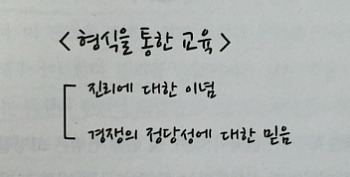 <형식을 통한 교육>
진리에 대한 이념
경쟁의 정당성에 대한 믿음